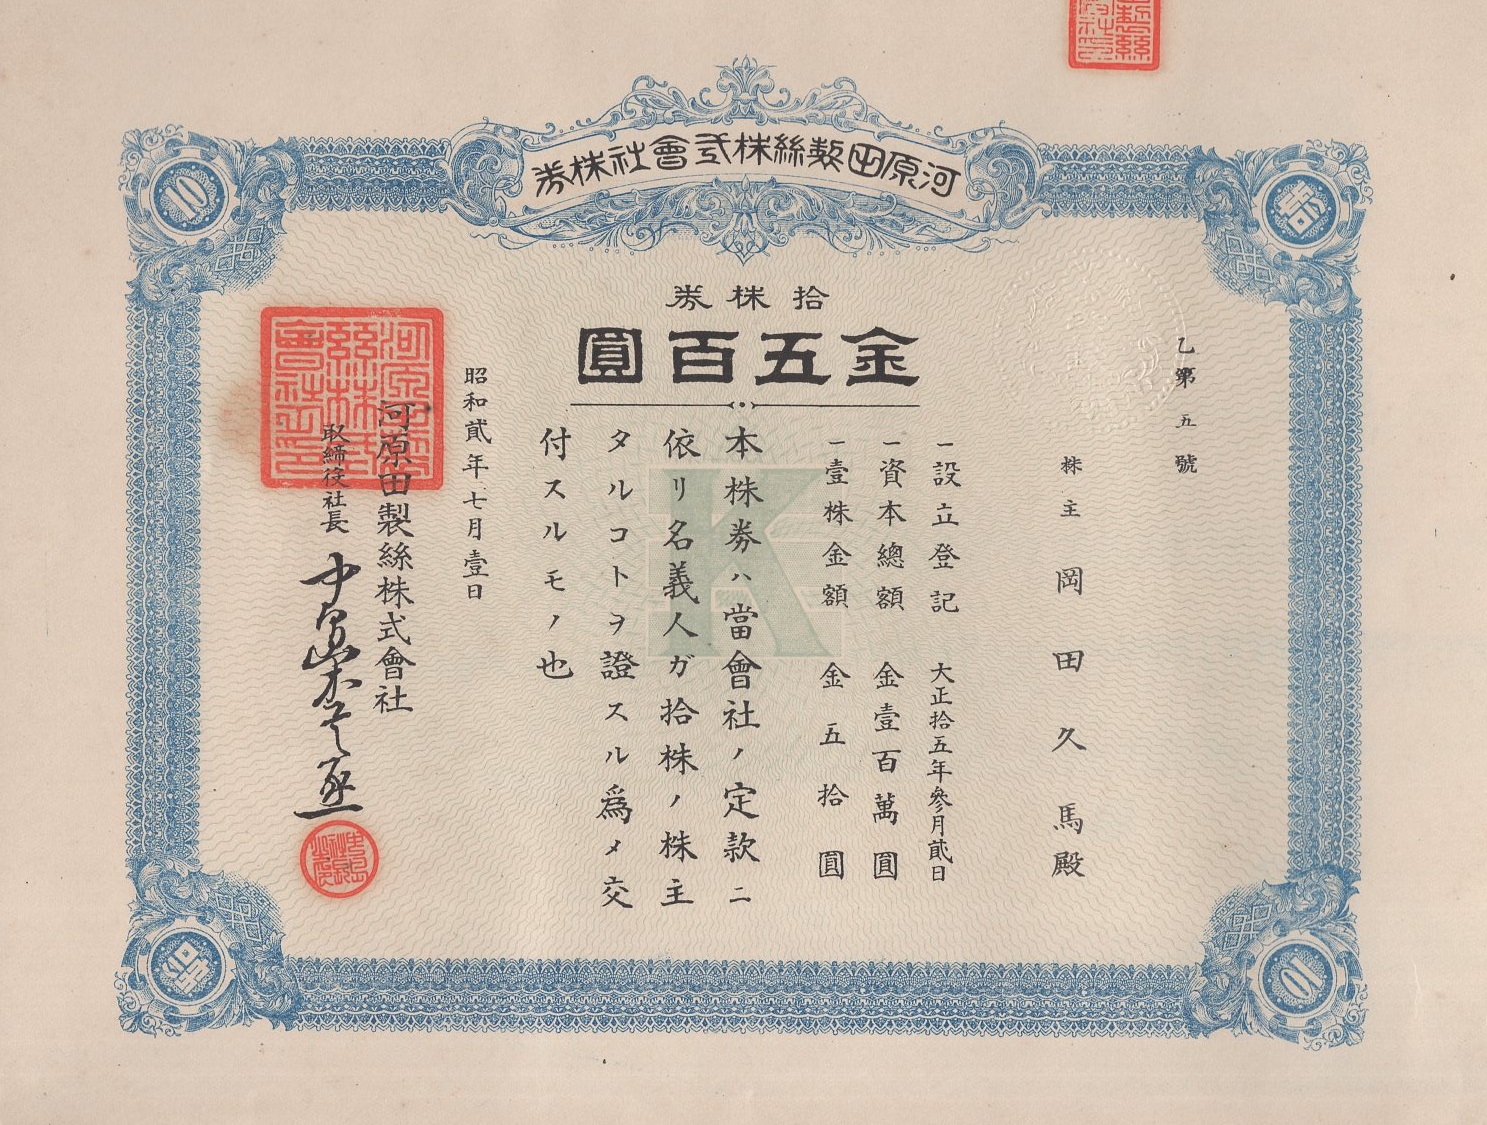 河原田製絲株式會社株券
拾株券
金五百圓
乙第五號
株主 岡田久馬殿
一設立登記 大正拾五年參月貳日
一資本總額 金壹百萬圓
一壹株金額 金五拾圓
本株券ハ當會社ノ定款ニ
依リ名義人ガ拾株ノ株主
タルコトヲ證スル爲メ交
付スルモノ也
昭和貳年七月壹日
河原田製絲株式會社
取締役社長
10
拾
拾
10
K